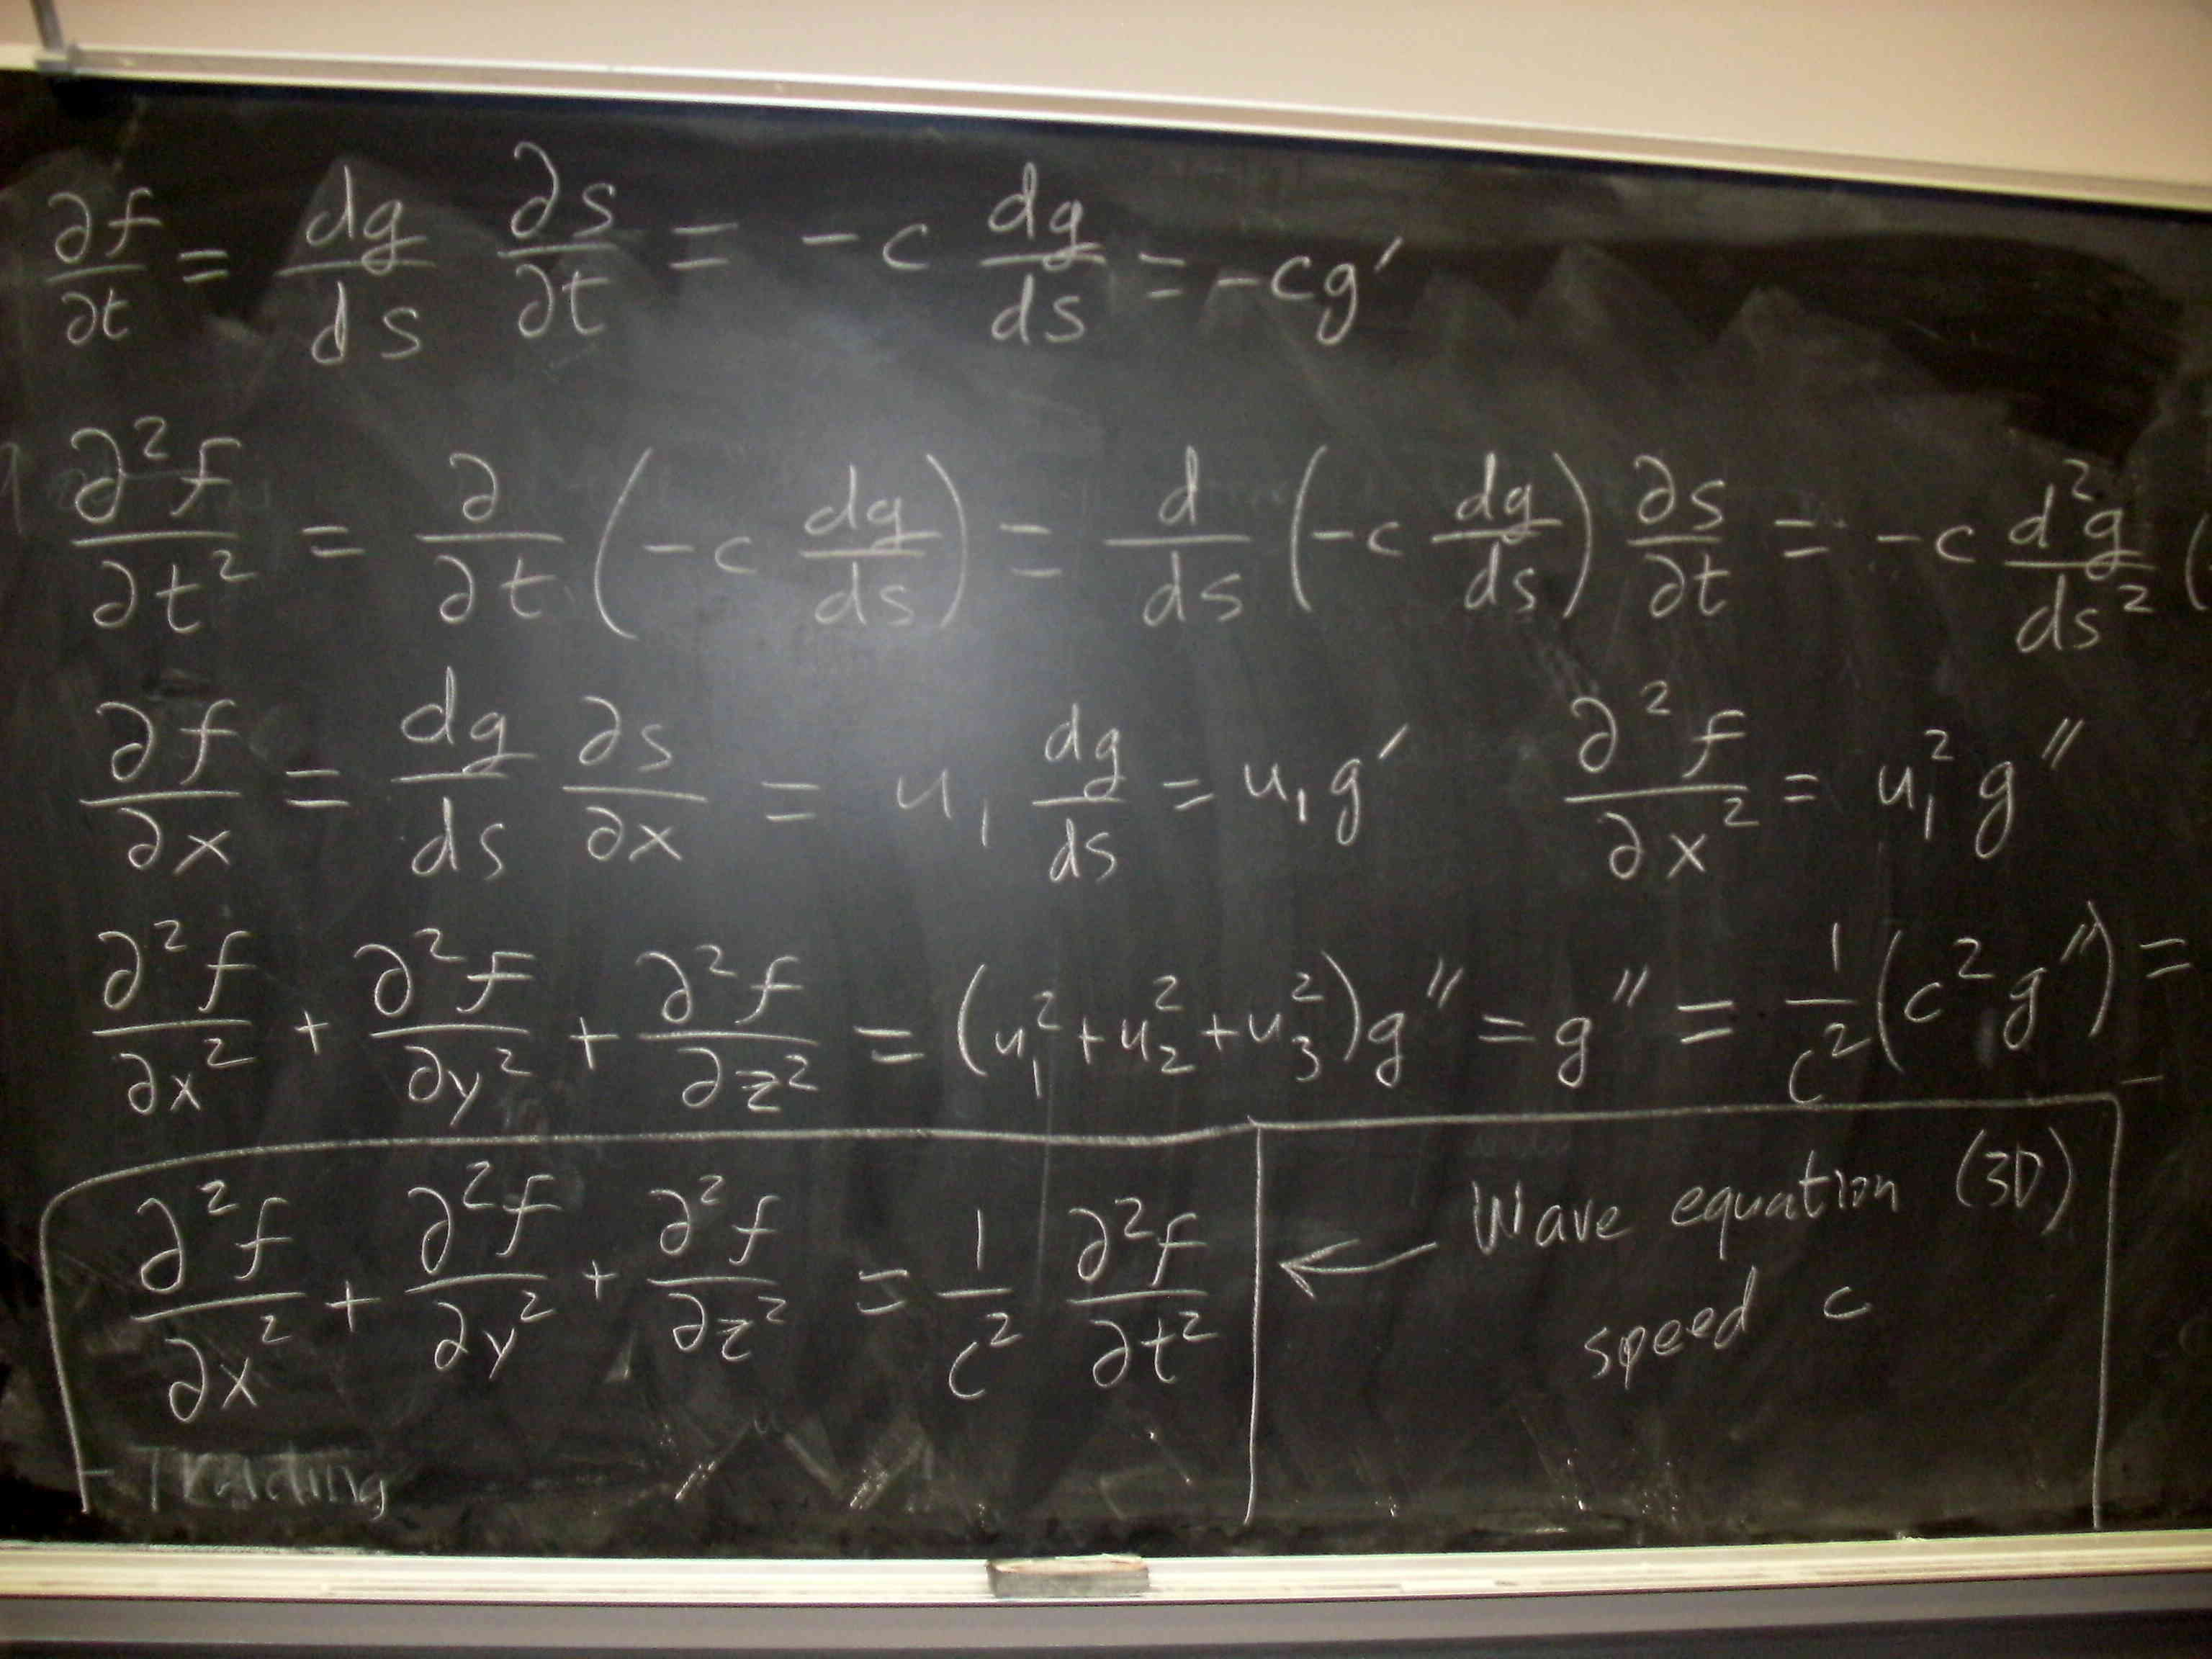 ∂f/∂t = dg/ds ∂s/∂t = -c dg/ds = -cg′
∂²f/∂t² = ∂/∂t (-c dg/ds) = d/ds (-c dg/ds) ∂s/∂t = -c d²g/ds² (
∂f/∂x = dg/ds ∂s/∂x = u₁ dg/ds = u₁g′ ∂²f/∂x² = u₁² g″
∂²f/∂x² + ∂²f/∂y² + ∂²f/∂z² = (u₁² + u₂² + u₃²)g″ = g″ = 1/c² (c² g″) =
∂²f/∂x² + ∂²f/∂y² + ∂²f/∂z² = 1/c² ∂²f/∂t² ← Wave equation (3D)
speed c
- Trading